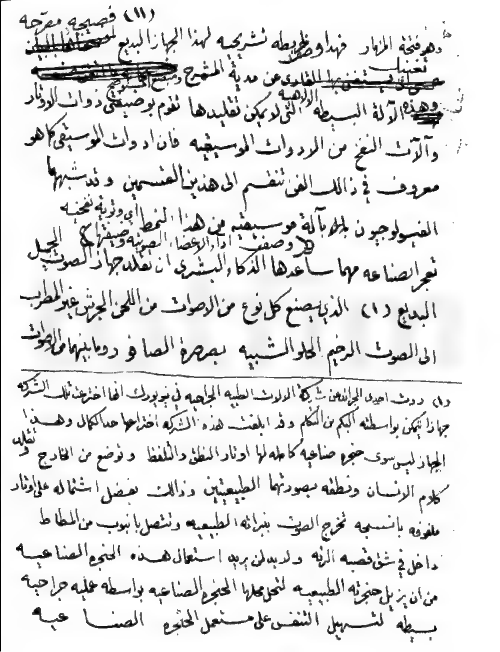 (١١) فصيحة مفرحة
وهو فتحة المزمار فهذا وصف خريطه تشريحيه لهذا الجهاز البديع
تغنيك عن مدية المشرح
وهذه الآلة البسيطه الالهية التى لا يمكن تقليدها تقوم بوصيفتى ذوات الاوتار
وآلات النفخ من الادوات الموسيقيه فان ادوات الموسيقى كما هو
معروف فى ذالك الفن تنقسم الى هذين القسمين وقد شبهها
الفسيولوجيون بالة موسيقيه من هذا النمط اى وترية نفخيه
وصفة اداء الاعضاء الصوتيه وظيفتها
تعجز الصناعه مهما ساعدها الذكاء البشرى ان تقلد جهاز الصوت الجميل
البديع (١) الذى يصنع كل نوع من الاصوات من اللحن الجرش غير المطرب
الى الصوت الرخيم الحلو الشبيه بصرصرة الصافر وما بينهما من الاصوات
(١) روت احدى الجرائد عن شركة الادوات الطبيه الجراحيه فى نيويورك انها اخترعت تلك الشركه
جهازا يتمكن بواسطته البكم من التكلم وقد ابلغت هذه الشركه اختراعها حد الكمال وهذا
الجهاز ليس سوى حنجره صناعيه كامله لها اوتار النطق والتلفظ وتوضع من الخارج وتقلد
كلام الانسان ونطقه بصورتهما الطبيعيتين وذالك بفضل اشتماله على اوتار
ملفوفه بانسجه تخرج الصوت بنبراته الطبيعيه وتتصل بانبوب من المطاط
داخل فى شق قصبه الرئه ولابد لمن يريد استعمال هذه الحنجره الصناعيه
من ان يزيل حنجرته الطبيعيه لتحل محلها الحنجره الصناعيه بواسطه عمليه جراحيه
بسيطه لتسهيل التنفس على مستعمل الحنجره الصناعيه